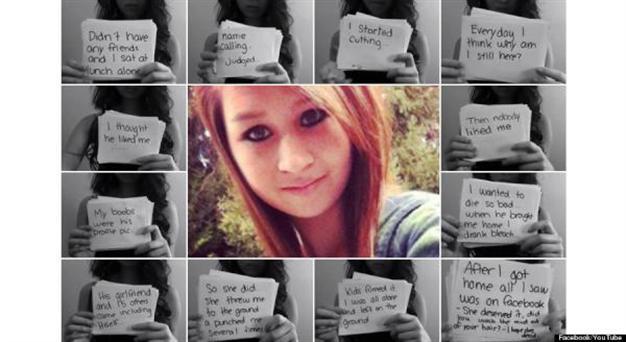 Didn't have
any friends
and I sat at
lunch alone
name
calling..
Judged..
I Started
cutting...
Everyday I
think why am
I still here?
I thought
he liked me
Then nobody
liked me
My boobs
were his
profile pic..
I wanted to
die so bad..
when he brought
me home I
drank bleach..
His girlfriend
and 15 others
came including
himself..
So she did
she threw me
to the ground
a punched me
several times
Kids filmed it
I was all alone
and left on the
ground
After I got
home all I saw
was on facebook
- She deserved it, did
you wash the mud out
of your hair? - I hope shes
dead
Facebook/YouTube